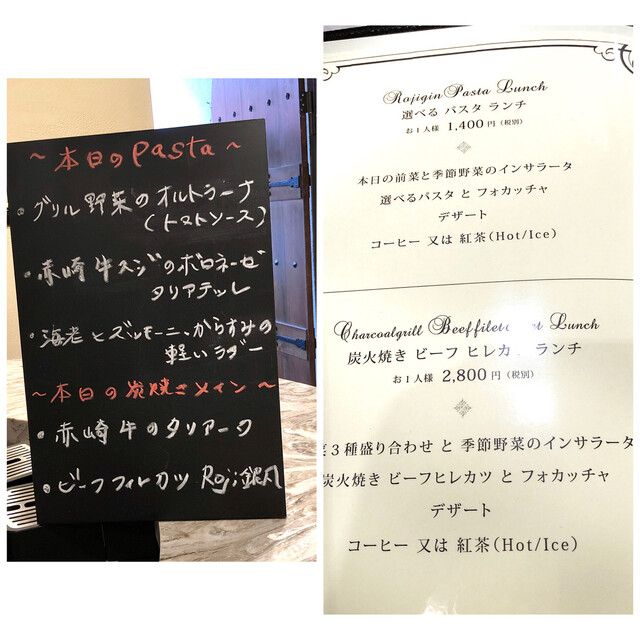 ～本日のpasta～
・グリル野菜のオルトラーナ
(トマトソース)
・赤崎牛スジのボロネーゼ
タリアテッレ
・海老とズッキーニ、からすみの
軽いラグー
～本日の炭焼きメイン～
・赤崎牛のタリアータ
・ビーフフィレカツ Roji銀风
Rojigin Pasta Lunch
選べる パスタ ランチ
お1人様 1,400円(税別)
本日の前菜と季節野菜のインサラータ
選べるパスタ と フォカッチャ
デザート
コーヒー 又は 紅茶(Hot/Ice)
Charcoalgrill Beeffilet Lunch
炭火焼き ビーフ ヒレカ ランチ
お1人様 2,800円(税別)
3種盛り合わせ と 季節野菜のインサラータ
炭火焼き ビーフヒレカツ と フォカッチャ
デザート
コーヒー 又は 紅茶(Hot/Ice)